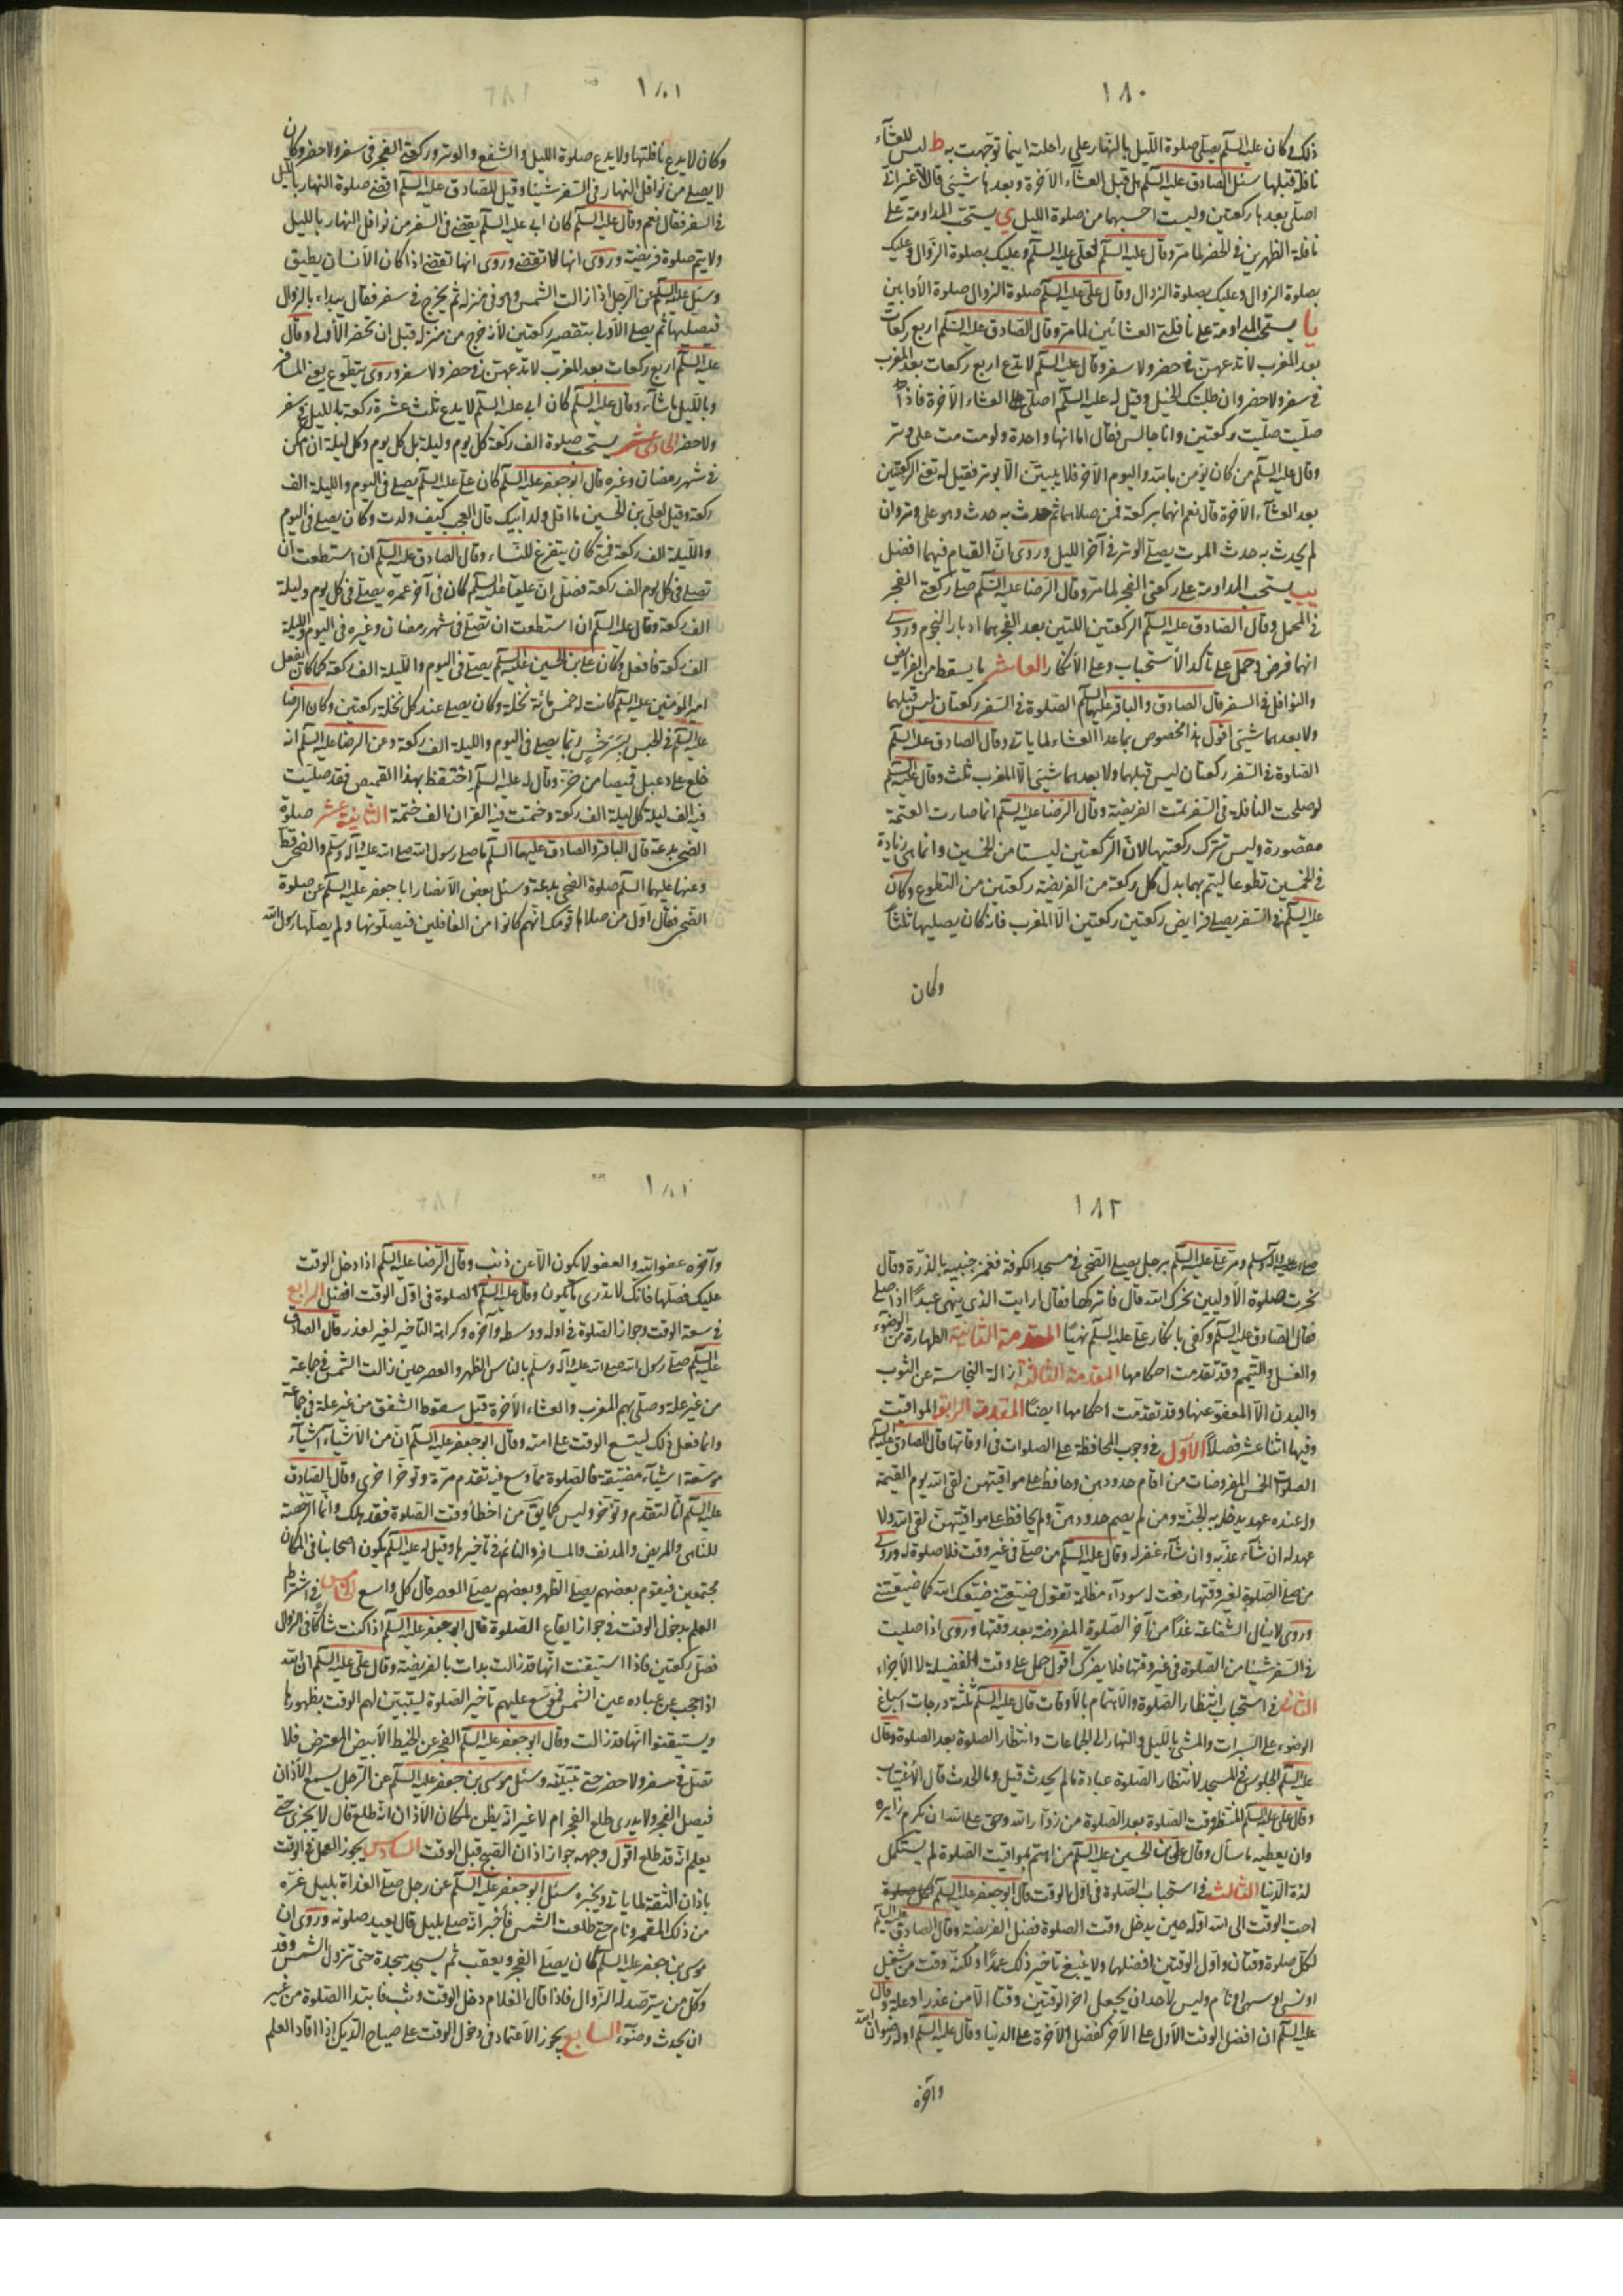 ١٨٠
ذلك وكان عليه السلم يصلي صلوة الليل بالنهار على راحلته اينما توجهت به ط ليس للعشاء
نافلة قبلها سئل الصادق عليه السلم هل قبل العشاء الآخرة وبعدها شيئ قال لا غير اني
اصلي بعدها ركعتين ولست احسبهما من صلوة الليل ي يستحب المداومة على
نافلة الظهرين في الحضر لما مر وقال عليه السلم لعلي عليه السلم وعليك بصلوة الزوال وعليك
بصلوة الزوال وعليك بصلوة الزوال وقال علي عليه السلم صلوة الزوال صلوة الأوابين
يا يستحب المداومة على نافلة العشائين لما مر وقال الصادق عليه السلم اربع ركعات
بعد المغرب لا تدعهن في حضر ولا سفر وقال عليه السلم لا تدع اربع ركعات بعد المغرب
في سفر ولا حضر وان طلبتك الخيل وقيل له عليه السلم اصلي العشاء الآخرة فاذا
صليت صليت ركعتين وانا جالس فقال اما انها واحدة ولو مت مت على وتر
وقال عليه السلم من كان يؤمن بالله واليوم الآخر فلا يبيتن الا بوتر فقيل له تعني الركعتين
بعد العشاء الآخرة قال نعم انهما بركعة فمن صلاهما ثم حدث به حدث وهو على وتر وان
لم يحدث به حدث الموت يصلي الوتر في آخر الليل وروى ان القيام فيهما افضل
يب يستحب المداومة على ركعتي الفجر لما مر وقال الرضا عليه السلم صل ركعتي الفجر
في المحمل وقال الصادق عليه السلم الركعتين اللتين بعد الفجر هما ادبار النجوم وروى
انهما فرض وحمل على تأكد الأستحباب وعلى الأنكار العاشر ما يسقط من الفرايض
والنوافل في السفر قال الصادق والباقر عليهما السلم الصلوة في السفر ركعتان ليس قبلهما
ولا بعدهما شيئ اقول هذا مخصوص بما عدا العشاء لما ياتي وقال الصادق عليه السلم
الصلوة في السفر ركعتان ليس قبلهما ولا بعدهما شيئ الا المغرب ثلث وقال عليه السلم
لو صلحت النافلة في السفر تمت الفريضة وقال الرضا عليه السلم انما صارت العتمة
مقصورة وليس تترك ركعتيها لان الركعتين ليستا من الخمسين وانما هي زيادة
في الخمسين تطوعا ليتم بهما بدل كل ركعة من الفريضة ركعتين من التطوع وكان
عليه السلم في السفر يصلي فرايض ركعتين ركعتين الا المغرب فانه كان يصليها ثلثا
وكان
١٨١
وكان لا يدع نافلتها ولا يدع صلوة الليل والشفع والوتر وركعتي الفجر في سفر ولا حضر وكان
لا يصلي من نوافل النهار في السفر شيئا وقيل للصادق عليه السلم اقضي صلوة النهار بالليل
في السفر فقال نعم وقال عليه السلم كان ابي عليه السلم يقضي في السفر من نوافل النهار بالليل
ولا يتم صلوة فريضة وروى انها لا تقضى وروى انها تقضى اذا كان الأنسان يطيق
وسئل عليه السلم عن الرجل اذا زالت الشمس وهو في منزله ثم يخرج في سفر فقال يبداء بالزوال
فيصليها ثم يصلي الأولى بتقصير ركعتين لأنه خرج من منزله قبل ان تحضر الأولى وقال
عليه السلم اربع ركعات بعد المغرب لا تدعهن في حضر ولا سفر وروى يتطوع يعني المسافر
وبالليل ما شاء وقال عليه السلم كان ابي عليه السلم لا يدع ثلث عشرة ركعة بالليل في سفر
ولا حضر الحادي عشر يستحب صلوة الف ركعة كل يوم وليلة بل كل يوم وكل ليلة ان امكن
في شهر رمضان وغيره قال ابو جعفر عليه السلم كان علي عليه السلم يصلي في اليوم والليلة الف
ركعة وقيل لعلي بن الحسين ما اقل ولد ابيك قال العجب كيف ولدت وكان يصلي في اليوم
والليلة الف ركعة فمتى كان يتفرغ للنساء وقال الصادق عليه السلم ان استطعت ان
تصلي في كل يوم الف ركعة فصل ان عليا عليه السلم كان في آخر عمره يصلي في كل يوم وليلة
الف ركعة وقال عليه السلم ان استطعت ان تصلي في شهر رمضان وغيره في اليوم والليلة
الف ركعة فافعل وكان علي بن الحسين عليه السلم يصلي في اليوم والليلة الف ركعة كما كان يفعل
امير المؤمنين عليه السلم كانت له خمس مائة نخلة وكان يصلي عند كل نخلة ركعتين وكان الرضا
عليه السلم في الحبس بسرخس ربما يصلي في اليوم والليلة الف ركعة وعن الرضا عليه السلم انه
خلع على دعبل قميصا من خز وقال له عليه السلم احتفظ بهذا القميص فقد صليت
فيه الف ليلة كل ليلة الف ركعة وختمت فيه القران الف ختمة الثانية عشر صلوة
الضحى بدعة قال الباقر والصادق عليهما السلم ما صلى رسول الله صلى الله عليه وآله وسلم والضحى قط
وعنهما عليهما السلم صلوة الضحى بدعة وسئل بعض الأنصار ابا جعفر عليه السلم عن صلوة
الضحى فقال اول من صلاها قومك انهم كانوا من الغافلين فيصلونها ولم يصلها رسول الله
١٨٢
صلى الله عليه وآله وسلم ومر علي عليه السلم برجل يصلي الضحى في مسجد الكوفة فغمز جنبيه بالدرة وقال
نحرت صلوة الأوابين نحرك الله قال فاتركها فقال ارايت الذي ينهى عبدا اذا صلى
فقال الصادق عليه السلم وكفى بانكار علي عليه السلم نهيا المقدمة الثانية الطهارة من الوضوء
والغسل والتيمم وقد تقدمت احكامها المقدمة الثالثة ازالة النجاسة عن الثوب
والبدن الا المعفو عنها وقد تقدمت احكامها ايضا المقدمة الرابعة المواقيت
وفيها اثنا عشر فصلا الأول في وجوب المحافظة على الصلوات في اوقاتها قال الصادق عليه السلم
الصلوات الخمس المفروضات من اقام حدودهن وحافظ على مواقيتهن لقى الله يوم القيمة
وله عنده عهد يدخله به الجنة ومن لم يقم حدودهن ولم يحافظ على مواقيتهن لقى الله ولا
عهد له ان شاء عذبه وان شاء غفر له وقال عليه السلم من صلى في غير وقت فلا صلوة له وروى
من صلى الصلوة لغير وقتها رفعت له سوداء مظلمة تقول ضيعتني ضيعك الله كما ضيعتني
وروى لا ينال الشفاعة غدا من اخر الصلوة المفروضة بعد وقتها وروى اذا صليت
في السفر شيئا من الصلوة في غير وقتها فلا يضرك اقول حمل على وقت الفضيلة لا الأجزاء
الثاني في استحباب انتظار الصلوة والأهتمام بالأوقات قال عليه السلم ثلثة درجات اسباغ
الوضوء على السبرات والمشي بالليل والنهار الى الجماعات وانتظار الصلوة بعد الصلوة وقال
عليه السلم الجلوس في المسجد لانتظار الصلوة عبادة ما لم يحدث قيل وما الحدث قال الأغتياب
وقال علي عليه السلم المنتظر وقت الصلوة بعد الصلوة من زوار الله وحق على الله ان يكرم زايره
وان يعطيه ما سأل وقال علي بن الحسين عليه السلم من اهتم بمواقيت الصلوة لم يستكمل
لذة الدنيا الثالث في استحباب الصلوة في اول الوقت قال ابو جعفر عليه السلم لكل صلوة
احب الوقت الى الله اوله حين يدخل وقت الصلوة فصل الفريضة وقال الصادق عليه السلم
لكل صلوة وقتان واول الوقتين افضلها ولا ينبغي تأخير ذلك عمدا ولكنه وقت من شغل
او نسى او سهى او نام وليس لأحد ان يجعل اخر الوقتين وقتا الا من عذر او علة وقال
عليه السلم ان افضل الوقت الأول على الآخر كفضل الآخرة على الدنيا وقال عليه السلم اوله رضوان الله
وآخره
وآخره عفو الله والعفو لا يكون الا عن ذنب وقال الرضا عليه السلم اذا دخل الوقت
عليك فصلها فانك لا تدري ما يكون وقال عليه السلم الصلوة في اول الوقت افضل الرابع
في سعة الوقت وجواز الصلوة في اوله ووسطه وآخره وكراهة التأخير لغير لعذر قال الصادق
عليه السلم صلى رسول الله صلى الله عليه وآله وسلم بالناس الظهر والعصر حين زالت الشمس في جماعة
من غير علة وصلى بهم المغرب والعشاء الآخرة قبل سقوط الشفق من غير علة في جماعة
وانما فعل ذلك ليتسع الوقت على امته وقال ابو جعفر عليه السلم ان من الأشياء اشياء
موسعة واشياء مضيقة فالصلوة مما وسع فيه تقدم مرة وتؤخر اخرى وقال الصادق
عليه السلم انا لنقدم ونؤخر وليس كما يق من اخطأ وقت الصلوة فقد هلك وانما الرخصة
للناسي والمريض والمدنف والمسافر والنائم في تأخيرها وقيل له عليه السلم يكون اصحابنا في المكان
مجتمعين فيقوم بعضهم يصلي الظهر وبعضهم يصلي العصر قال كل واسع الخامس في اشتراط
العلم بدخول الوقت في جواز ايقاع الصلوة قال ابو جعفر عليه السلم اذا كنت شاكا في الزوال
فصل ركعتين فاذا استيقنت انها قد زالت بدات بالفريضة وقال علي عليه السلم ان الله
اذا حجب عن عباده عين الشمس فموسع عليهم تأخير الصلوة ليتبين لهم الوقت بظهورها
ويستيقنوا انها قد زالت وقال ابو جعفر عليه السلم الفجر عن الخيط الأبيض المعترض فلا
تصل في سفر ولا حضر حتى تتبينه وسئل موسى بن جعفر عليه السلم عن الرجل يسمع الأذان
فيصلي الفجر ولا يدري طلع الفجر ام لا غير انه يظن لمكان الأذان انه طلع قال لا يجزي حتى
يعلم انه قد طلع اقول وجهه جواز اذان الصبح قبل الوقت السادس يجوز العمل في الوقت
باذان الثقة لما ياتي وبخبره سئل ابو جعفر عليه السلم عن رجل صلى الغداة بليل غره
من ذلك القمر ونام حتى طلعت الشمس فاخبر انه صلى بليل قال يعيد صلوته وروى ان
موسى بن جعفر عليه السلم كان يصلي الفجر ويعقب ثم يسجد سجدة حتى تزول الشمس وقد
وكل من يترصد له الزوال فاذا قال الغلام دخل الوقت وثب فابتدا الصلوة من غير
ان يحدث وضوء السابع يجوز الأعتماد في دخول الوقت على صياح الديك اذا افاد العلم